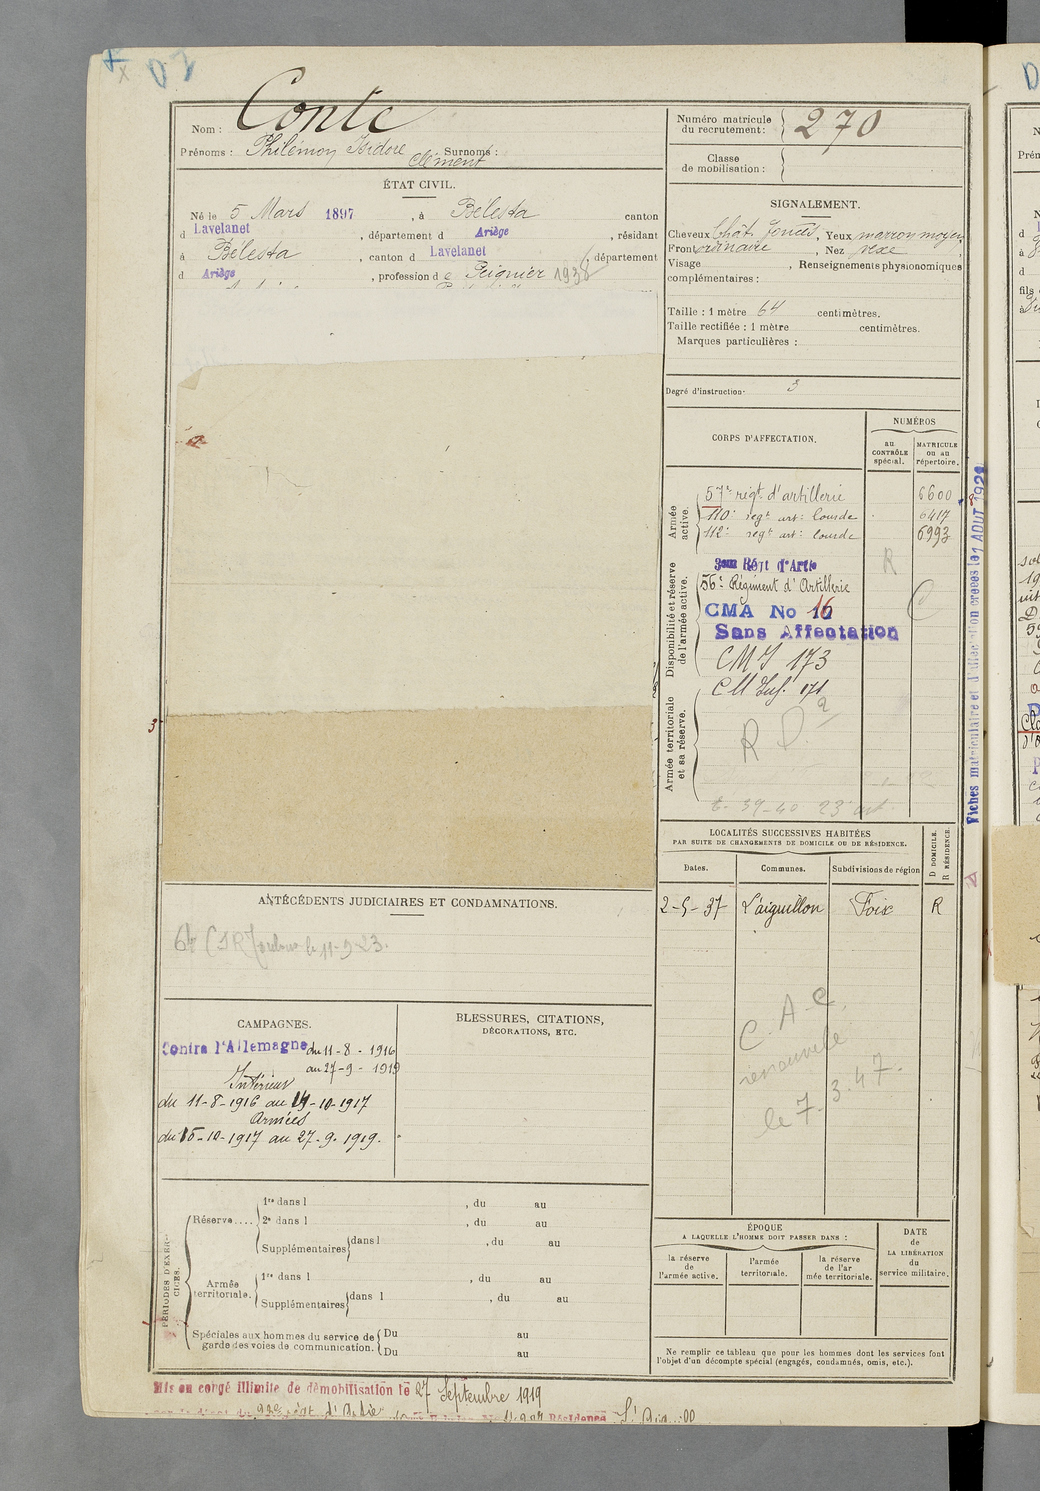 D1
Nom : Conte
Prénoms : Philémon Isidore Clément Surnoms :
ÉTAT CIVIL.
Né le 5 Mars 1897, à Bélesta canton
d Lavelanet, département d Ariège, résidant
à Bélesta, canton d Lavelanet, département
d Ariège, profession de Peignier 1936
Numéro matricule du recrutement : 270
Classe de mobilisation :
SIGNALEMENT.
Cheveux Chât. foncés, Yeux marron moyen
Front ordinaire, Nez vexe
Visage , Renseignements physionomiques
complémentaires :
Taille : 1 mètre 64 centimètres.
Taille rectifiée : 1 mètre centimètres.
Marques particulières :
Degré d'instruction 3
CORPS D'AFFECTATION.
NUMÉROS
au CONTRÔLE spécial.
MATRICULE ou au répertoire.
Armée active.
57e régt d'artillerie 6600
110e regt art: lourde 6417
112e regt art: lourde 6993
Disponibilité et réserve de l'armée active.
3eme Régt d'Artie
R
56e Régiment d'Artillerie
C
CMA No 16
Sans Affectation
CMI 173
Armée territoriale et sa réserve.
R D
39-40 23 art.
Fiches matriculaire et d'affectation créées le 1 AOUT 1929
3
LOCALITÉS SUCCESSIVES HABITÉES
PAR SUITE DE CHANGEMENTS DE DOMICILE OU DE RÉSIDENCE.
Dates. Communes. Subdivisions de région D DOMICILE. R RÉSIDENCE.
2-5-37 L'aiguillon Foix R
C.A.C.
renouvelé
le 7.3.47.
ANTÉCÉDENTS JUDICIAIRES ET CONDAMNATIONS.
le 11-9-23.
CAMPAGNES.
Contre l'Allemagne du 11-8-1916
au 27-9-1919
Intérieur
du 11-8-1916 au 14-10-1917
Armées
du 15-10-1917 au 27-9-1919.
BLESSURES, CITATIONS,
DÉCORATIONS, ETC.
PÉRIODES D'EXERCICES.
Réserve.... 1re dans l , du au
2e dans l , du au
Supplémentaires dans l , du au
Armée territoriale. 1re dans l , du au
Supplémentaires dans l , du au
Spéciales aux hommes du service de garde des voies de communication. Du au
Du au
ÉPOQUE
A LAQUELLE L'HOMME DOIT PASSER DANS :
la réserve de l'armée active.
l'armée territoriale.
la réserve de l'armée territoriale.
DATE de LA LIBÉRATION du service militaire.
Ne remplir ce tableau que pour les hommes dont les services font
l'objet d'un décompte spécial (engagés, condamnés, omis, etc.).
Mis en congé illimité de démobilisation le 27 Septembre 1919